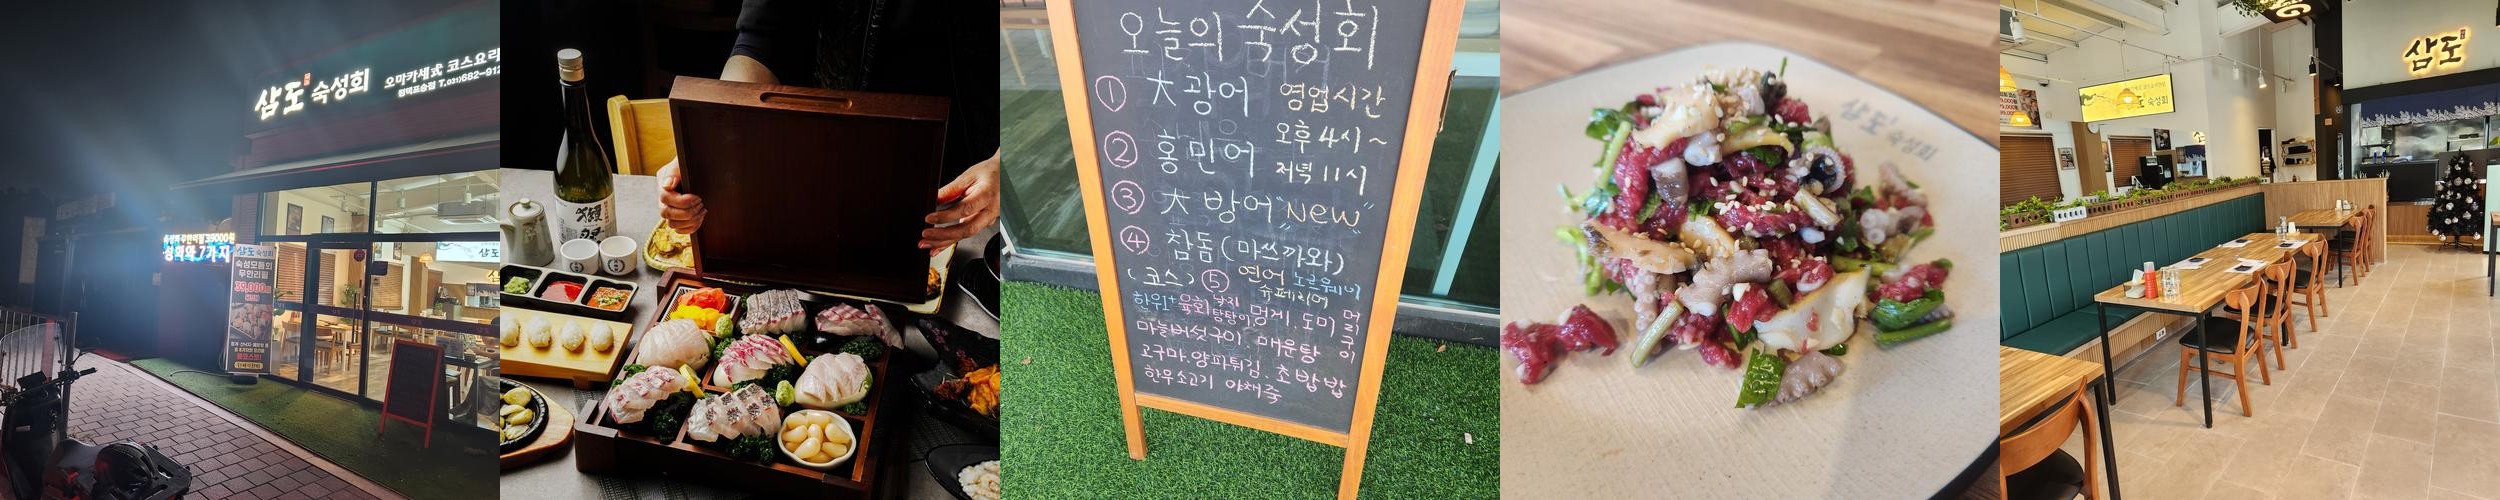 삼도 숙성회
오마카세式 코스요리
평택포승점 T.031)682-912
숙성회 무한리필 39000원
성회와 7가지
삼도 숙성회
숙성모듬회
무한리필
39,000원
오늘의 숙성회
① 大 광어 영업시간
② 홍민어 오후 4시 ~
저녁 11시
③ 大 방어 "NEW"
④ 참돔 (마쓰까와)
(코스) ⑤ 연어 노르웨이
슈페리어
한우+육회 낙지 탕탕이, 멍게, 도미 머리구이
마늘버섯구이, 매운탕
고구마, 양파튀김, 초밥밥
한우소고기 야채죽
삼도 숙성회
삼도
숙성회